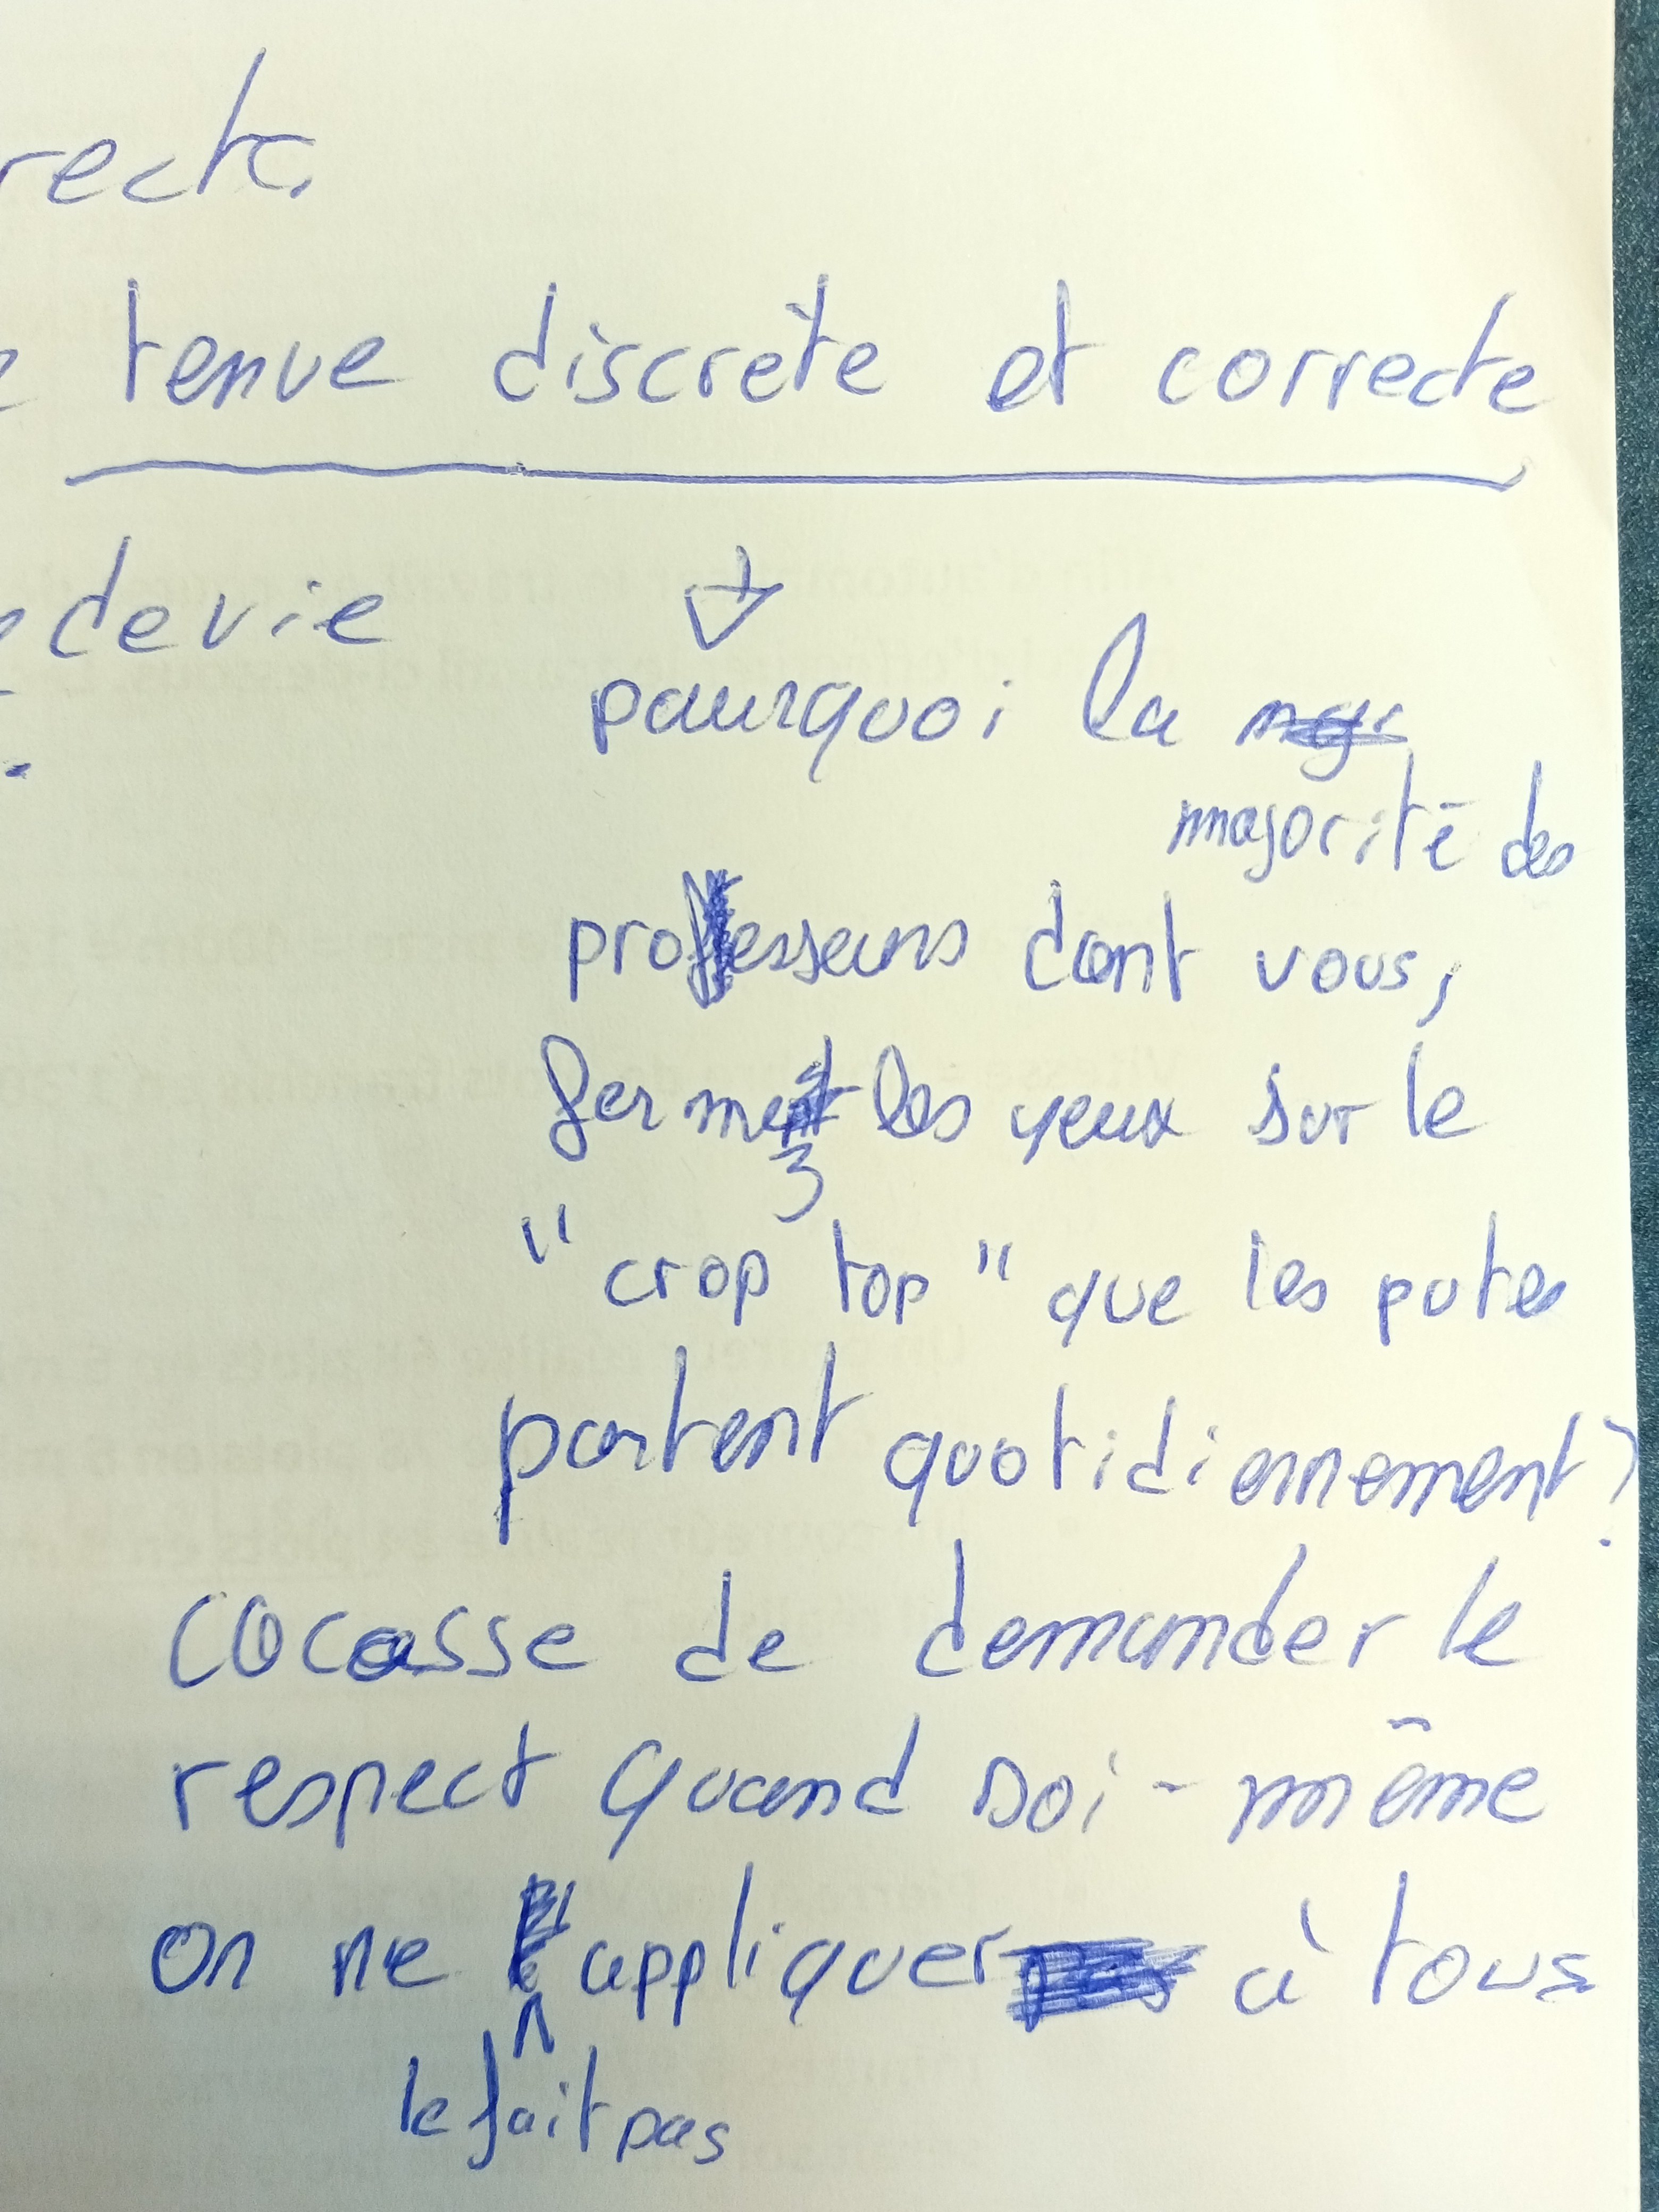 recte.
tenue discrète et correcte
de vie
pourquoi la
majorité des
professeurs dont vous,
ferment les yeux sur le
"crop top" que les putes
portent quotidiennement?
cocasse de demander le
respect quand soi-même
on ne appliquer à tous
le fait pas